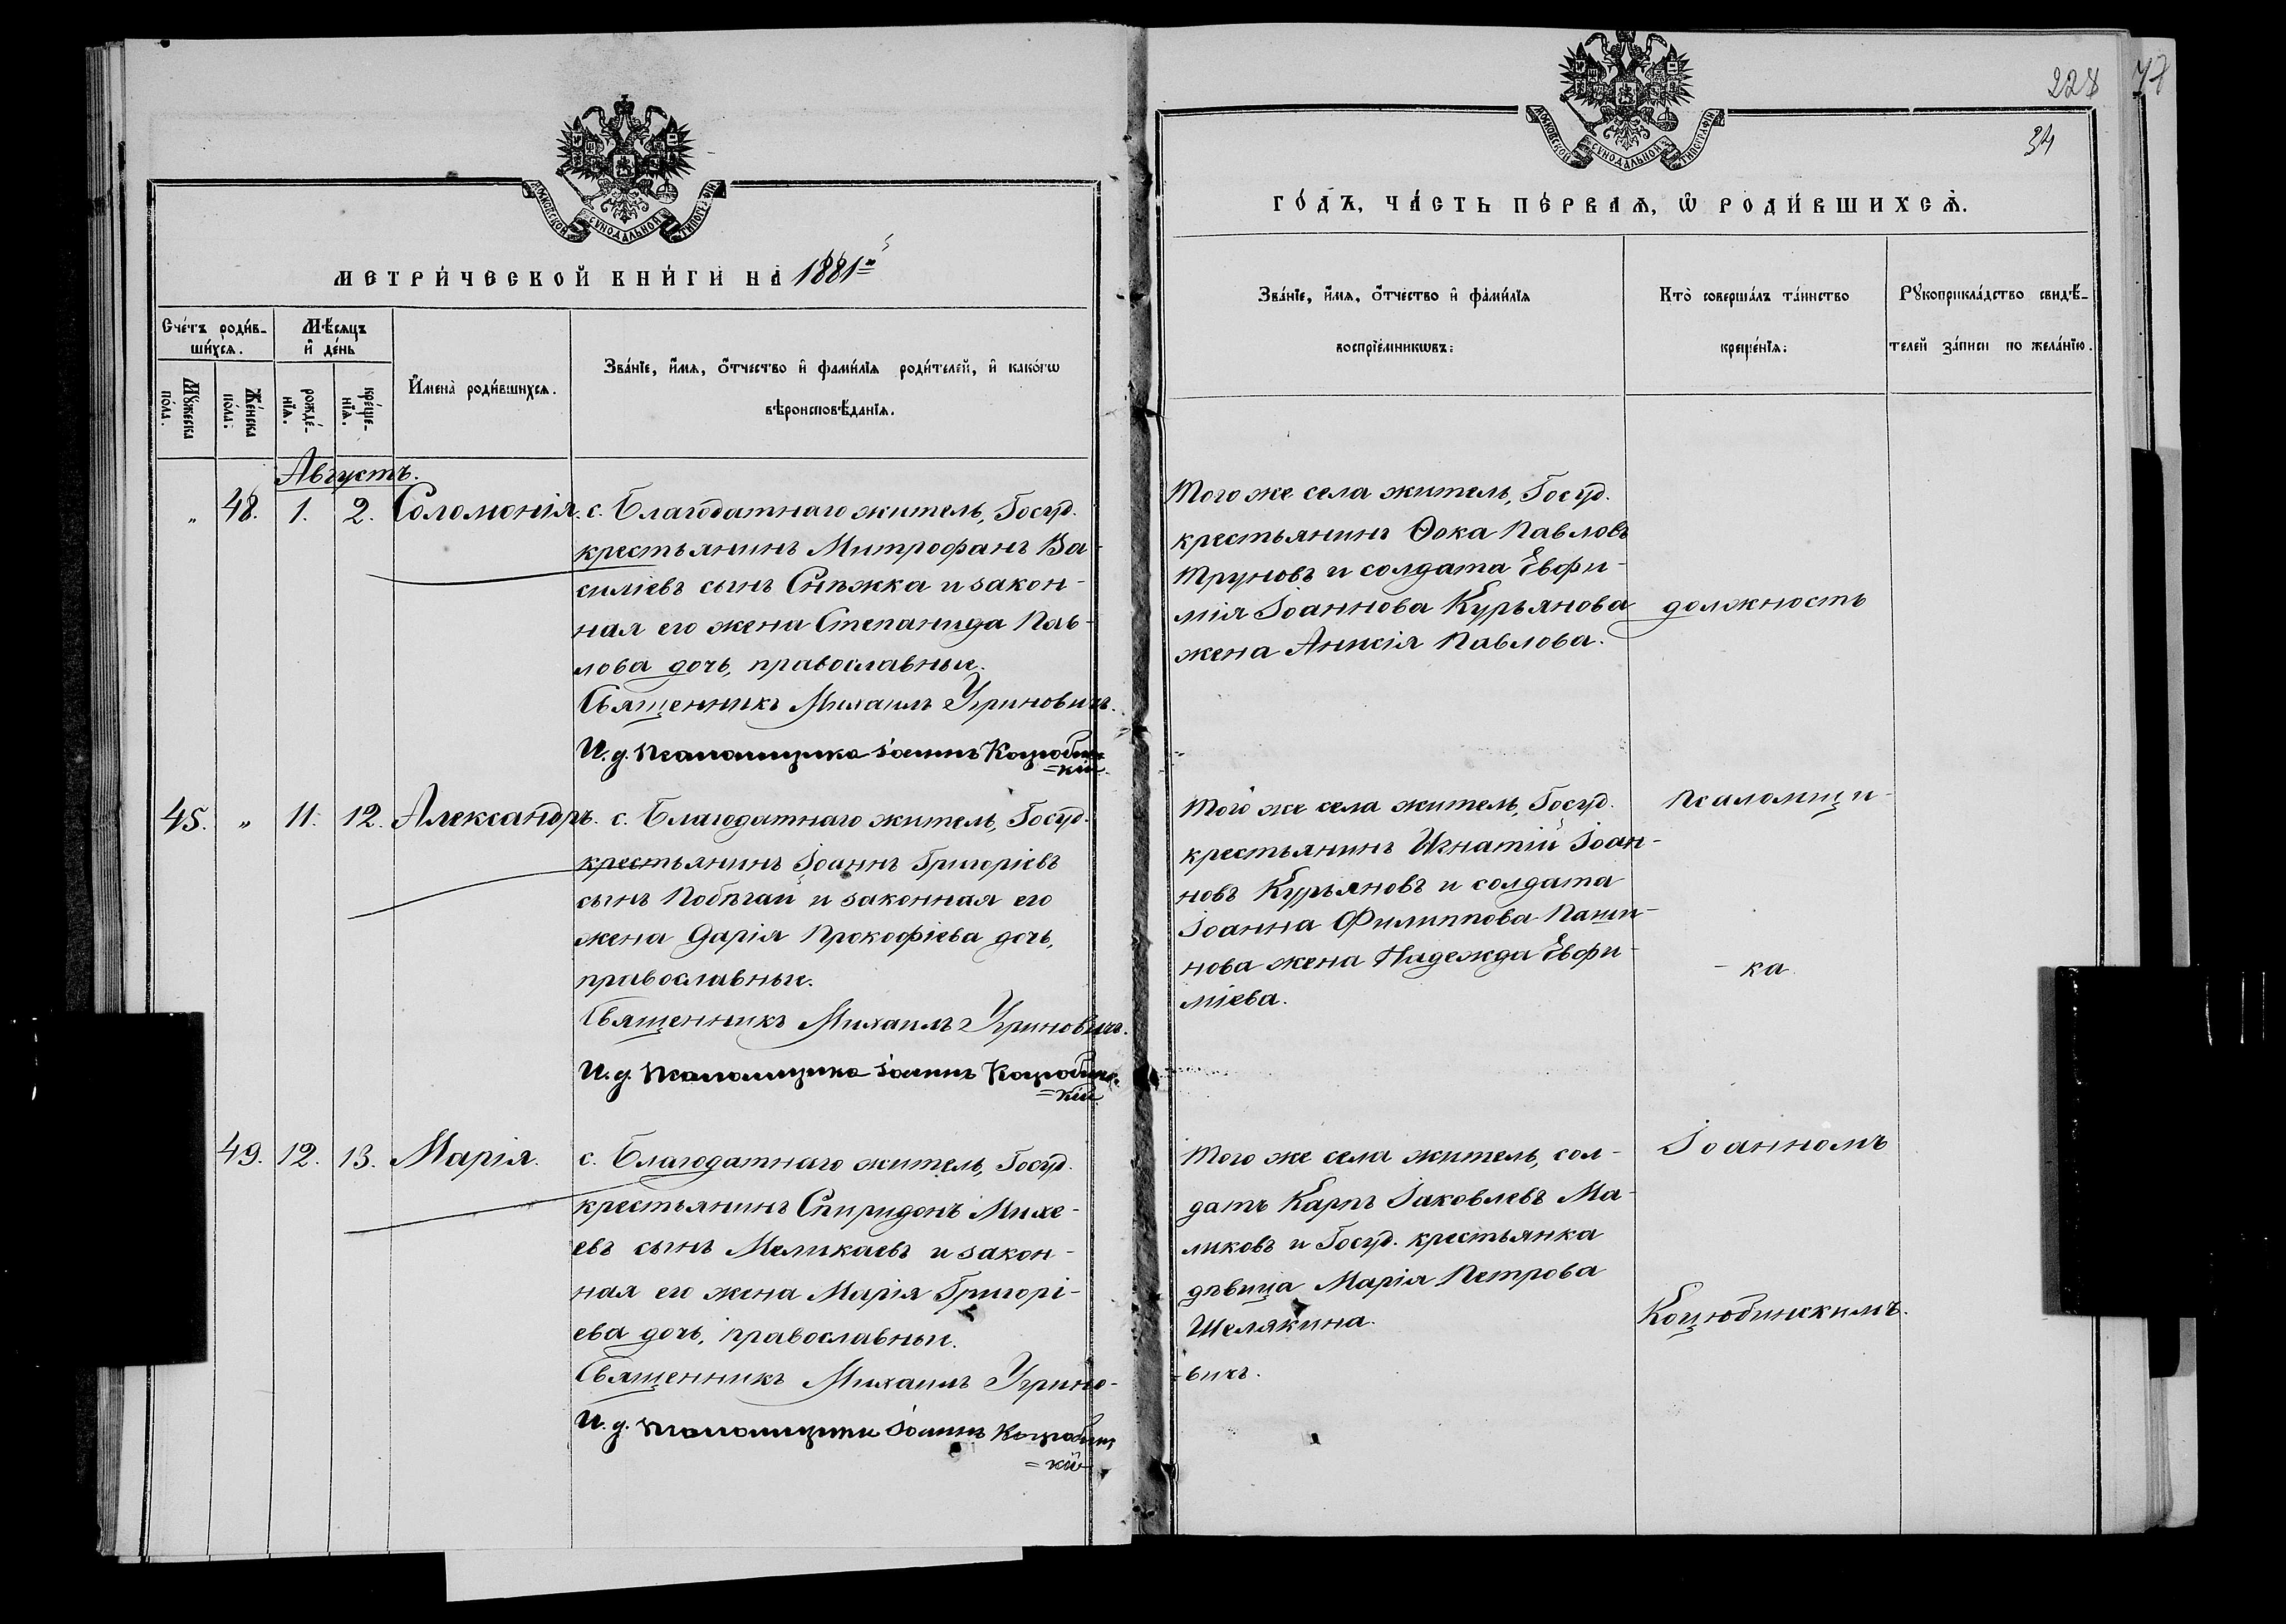 МОСКОВСКОЙ СѴНОДАЛЬНОЙ ТИПОГРАФІИ
МЕТРИ́ЧЕСКОЙ КНИ́ГИ НА 1881й
Сче́тъ роди́в-
ши́хсѧ.
Мѣ́сѧцъ
и҆ де́нь
Мꙋ́жеска
по́ла.
Же́нска
по́ла.
рожде́-
нїѧ.
креще́-
нїѧ.
И҆мена̀ роди́вшихсѧ.
Зва́нїе, и҆́мѧ, ѻ҆́тчество и҆ фами́лїѧ роди́телей, и҆ како́гѡ
вѣроисповѣ́данїѧ.
Августъ.
„ 48. 1. 2. Соломонія.
с. Благодатнаго житель, Госуд.
крестьянинъ Митрофанъ Ва-
силіевъ сынъ Снѣжка и закон-
ная его жена Степанида Пав-
лова дочь, православные.
Священникъ Михаилъ Угриновичъ.
И. д. Псаломщика Іоаннъ Коцюбинс
=кій
45. „ 11. 12. Александръ.
с. Благодатнаго житель, Госуд.
крестьянинъ Іоаннъ Григоріевъ
сынъ Побѣгай и законная его
жена Дарія Прокофіева дочь,
православные.
Священникъ Михаилъ Угриновичъ.
И. д. Псаломщика Іоаннъ Коцюбинс
=кій
49. 12. 13. Марія.
с. Благодатнаго житель, Госуд.
крестьянинъ Спиридонъ Михе-
евъ сынъ Меликаевъ и закон-
ная его жена Марія Григорі-
ева дочь, православные.
Священникъ Михаилъ Угрино-
И. д. Псаломщика Іоаннъ Коцюбинс
=кій
228
77
34
МОСКОВСКОЙ СѴНОДАЛЬНОЙ ТИПОГРАФІИ
ГО́ДЪ, ЧА́СТЬ ПЕ́РВАѦ, Ѡ҆ РОДИ́ВШИХСѦ.
Зва́нїе, и҆́мѧ, ѻ҆́тчество и҆ фами́лїѧ
воспрїе́мникѡвъ:
Кто̀ соверша́лъ та́инство
креще́нїѧ:
Рꙋкоприкла́дство свидѣ́-
телей за́писи по жела́нїю.
Того же села житель, Госуд.
крестьянинъ Ѳока Павловъ
Труновъ и солдата Евфи-
мія Іоаннова Курьянова
жена Анисія Павлова.
Того же села житель, Госуд.
крестьянинъ Игнатій Іоан-
новъ Курьяновъ и солдата
Іоанна Филиппова Паши-
нова жена Надежда Евфи-
міева.
Того же села житель, сол-
датъ Карпъ Іаковлевъ Ма-
ликовъ и Госуд. крестьянка
дѣвица Марія Петрова
Шелякина.
-вичъ.
должность
псаломщи-
-ка
Іоанномъ
Коцюбинскимъ.